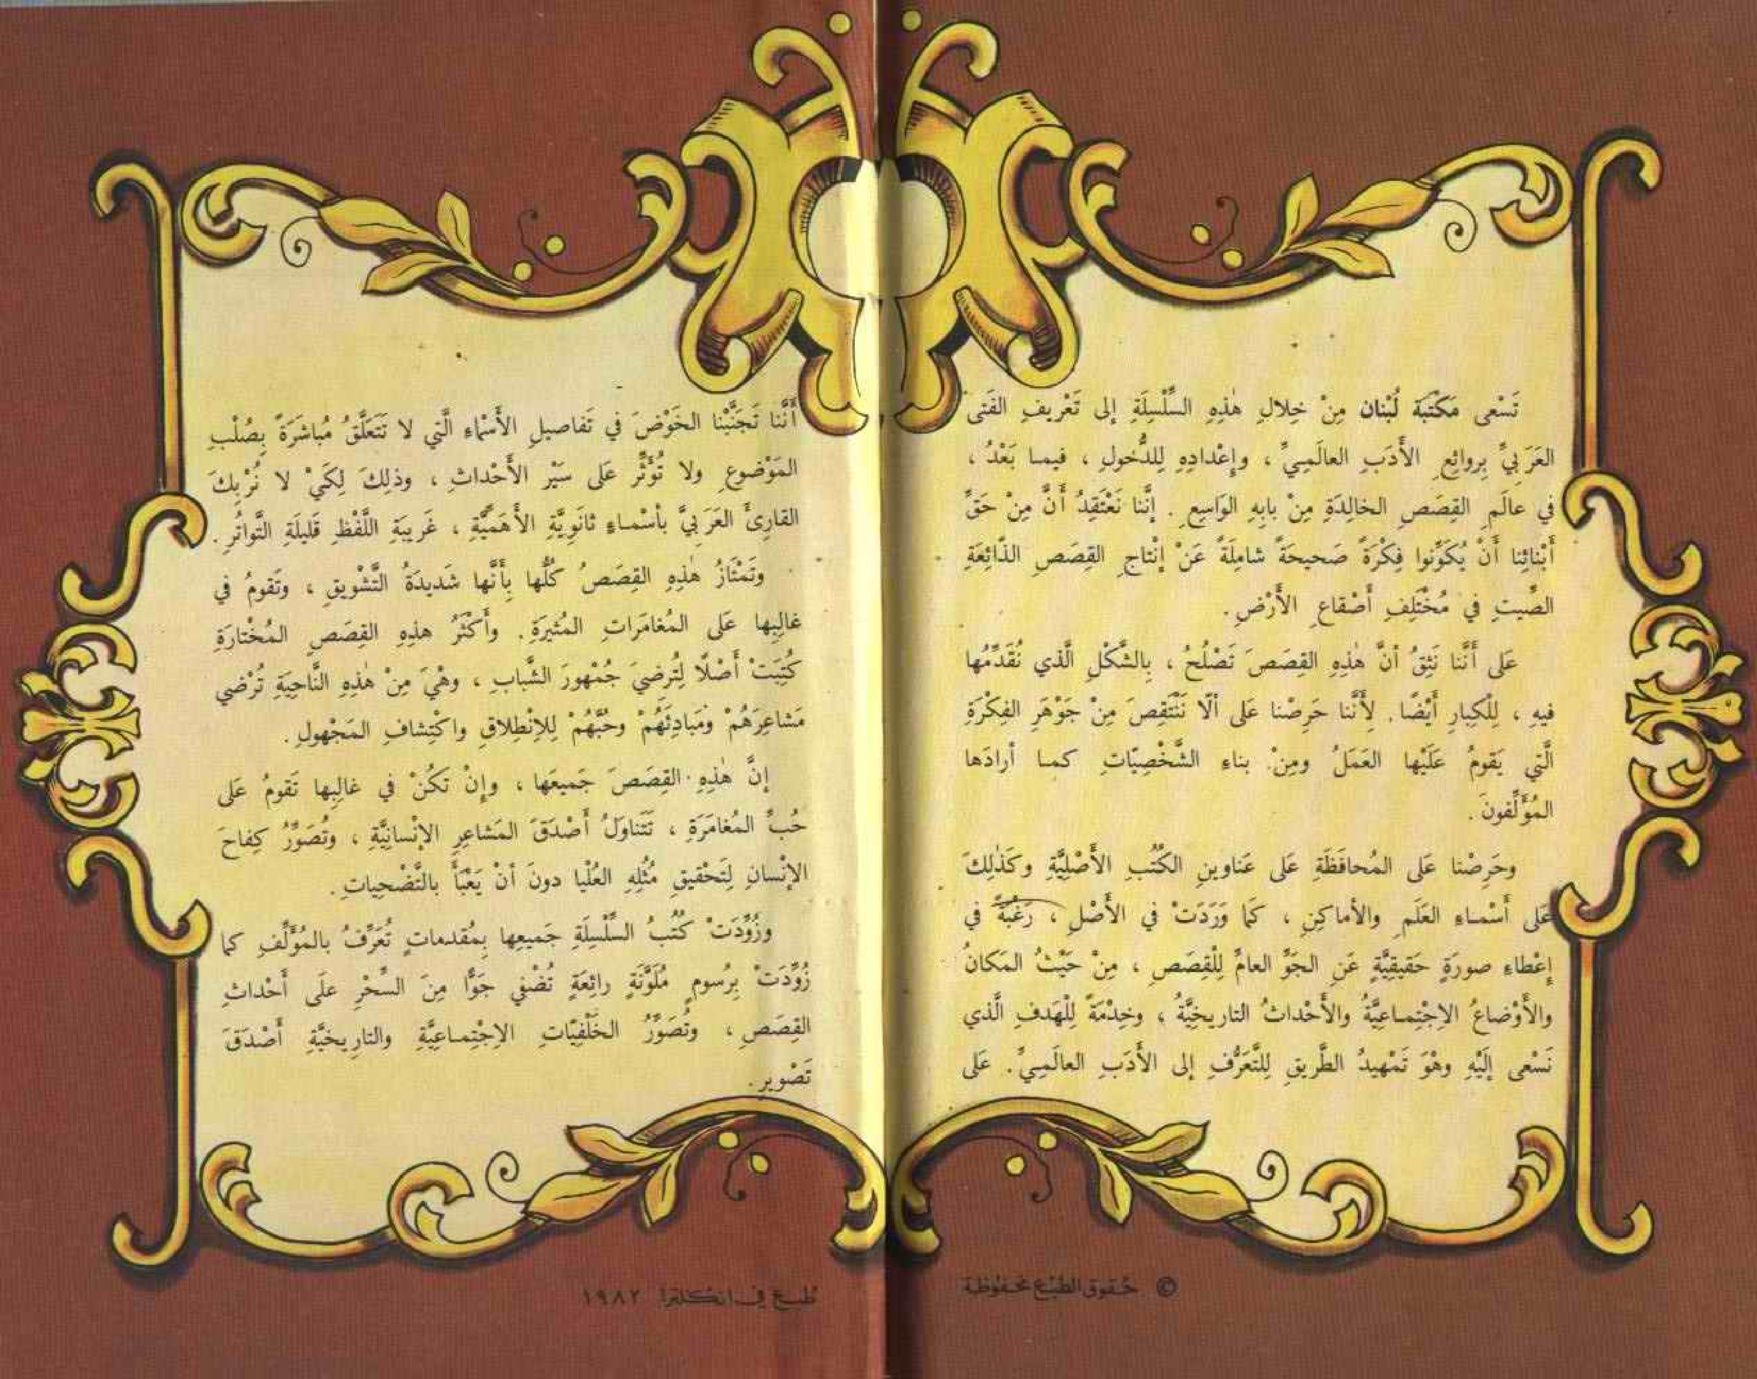 تَسْعى مَكْتَبَة لُبْنان مِنْ خِلالِ هٰذِهِ السِّلْسِلَةِ إلى تَعْريفِ الفَتى
العَرَبيِّ بِروائِعِ الأَدَبِ العالَمِيِّ ، وإِعْدادِهِ لِلدُّخولِ ، فيمـا بَعْدُ ،
في عالَمِ القِصَصِ الخالِدَةِ مِنْ بابِهِ الوَاسِعِ . إنَّنا نَعْتَقِدُ أَنَّ مِنْ حَقِّ
أَبْنائِنا أَنْ يُكَوِّنوا فِكْرَةً صَحيحَةً شامِلَةً عَنْ إنْتاجِ القِصَصِ الذّائِعَةِ
الصِّيتِ في مُخْتَلِفِ أَصْقاعِ الأَرْضِ .
عَلى أَنَّنا نَثِقُ أنَّ هٰذِهِ القِصَصَ تَصْلُحُ ، بِالشَّكْلِ الَّذي نُقَدِّمُها
فيهِ ، لِلْكِبارِ أَيْضًا . لِأَنَّنا حَرِصْنا عَلى ألّا نَنْتَقِصَ مِنْ جَوْهَرِ الفِكْرَةِ
الَّتي يَقومُ عَلَيْها العَمَلُ ومِنْ بناءِ الشَّخْصِيّاتِ كمـا أرادَها
المُؤَلِّفونَ .
وحَرِصْنا عَلى المُحافَظَةِ عَلى عَناوينِ الكُتُبِ الأَصْلِيَّةِ وكَذٰلِكَ
عَلى أَسْمـاءِ العَلَمِ والأماكِنِ ، كَما وَرَدَتْ في الأَصْلِ ، رَغْبَةً في
إعْطاءِ صورَةٍ حَقيقِيَّةٍ عَنِ الجَوِّ العامِّ لِلْقِصَصِ ، مِنْ حَيْثُ المَكانُ
والأَوْضاعُ الاِجْتِمـاعِيَّةُ والأَحْداثُ التاريخيَّةُ ، وخِدْمَةً لِلْهَدَفِ الَّذي
نَسْعى إلَيْهِ وهْوَ تَمْهيدُ الطَّريقِ لِلتَّعَرُّفِ إلى الأَدَبِ العالَمِيِّ . عَلى
© حقوق الطبع محفوظة
أَنَّنا تَجَنَّبْنا الخَوْضَ في تَفاصيلِ الأَسْماءِ الَّتي لا تَتَعَلَّقُ مُباشَرَةً بِصُلْبِ
المَوْضوعِ ولا تُؤَثِّرُ عَلى سَيْر الأَحْداثِ ، وذلِكَ لِكَيْ لا نُرْبِكَ
القارِئَ العَرَبيَّ بأَسْمـاءٍ ثانَوِيَّةِ الأَهَمِّيَّةِ ، غَريبَةِ اللَّفْظِ قَليلَةِ التَّواتُرِ .
وتَمْتَازُ هٰذِهِ القِصَصُ كُلُّها بِأَنَّها شَديدَةُ التَّشْويقِ ، وتَقومُ في
غالِبِها عَلى المُغامَراتِ المُثيرَةِ . وأَكْثَرُ هذِهِ القِصَصِ المُخْتارَةِ
كُتِبَتْ أَصْلًا لِتُرضيَ جُمْهورَ الشَّبابِ ، وهْيَ مِنْ هٰذِهِ النّاحِيَةِ تُرْضي
مَشاعِرَهُمْ ومَبادِئَهُمْ وحُبَّهُمْ لِلاِنْطِلاقِ واكْتِشافِ المَجْهولِ .
إنَّ هٰذِهِ القِصَصَ جَميعَها ، وإنْ تَكُنْ في غالِبِها تَقومُ عَلى
حُبِّ المُغامَرَةِ ، تَتَناوَلُ أَصْدَقَ المَشاعِرِ الإنْسانِيَّةِ ، وتُصَوِّرُ كِفاحَ
الإنْسانِ لِتَحْقيقِ مُثُلِهِ العُلْيا دونَ أنْ يَعْبَأَ بالتَّضْحِياتِ .
وزُوِّدَتْ كُتُبُ السِّلْسِلَةِ جَميعِها بِمُقدماتٍ تُعَرِّفُ بالمُؤَلِّفِ كما
زُوِّدَتْ بِرُسومٍ مُلَوَّنَةٍ رائِعَةٍ تُضْفي جَوًّا مِنَ السِّحْرِ عَلى أَحْداثِ
القِصَصِ ، وتُصَوِّرُ الخَلْفِيّاتِ الاِجْتِمـاعِيَّةِ والتاريخيَّةِ أَصْدَقَ
تَصْويرٍ .
طُبع في انكلترا ١٩٨٢